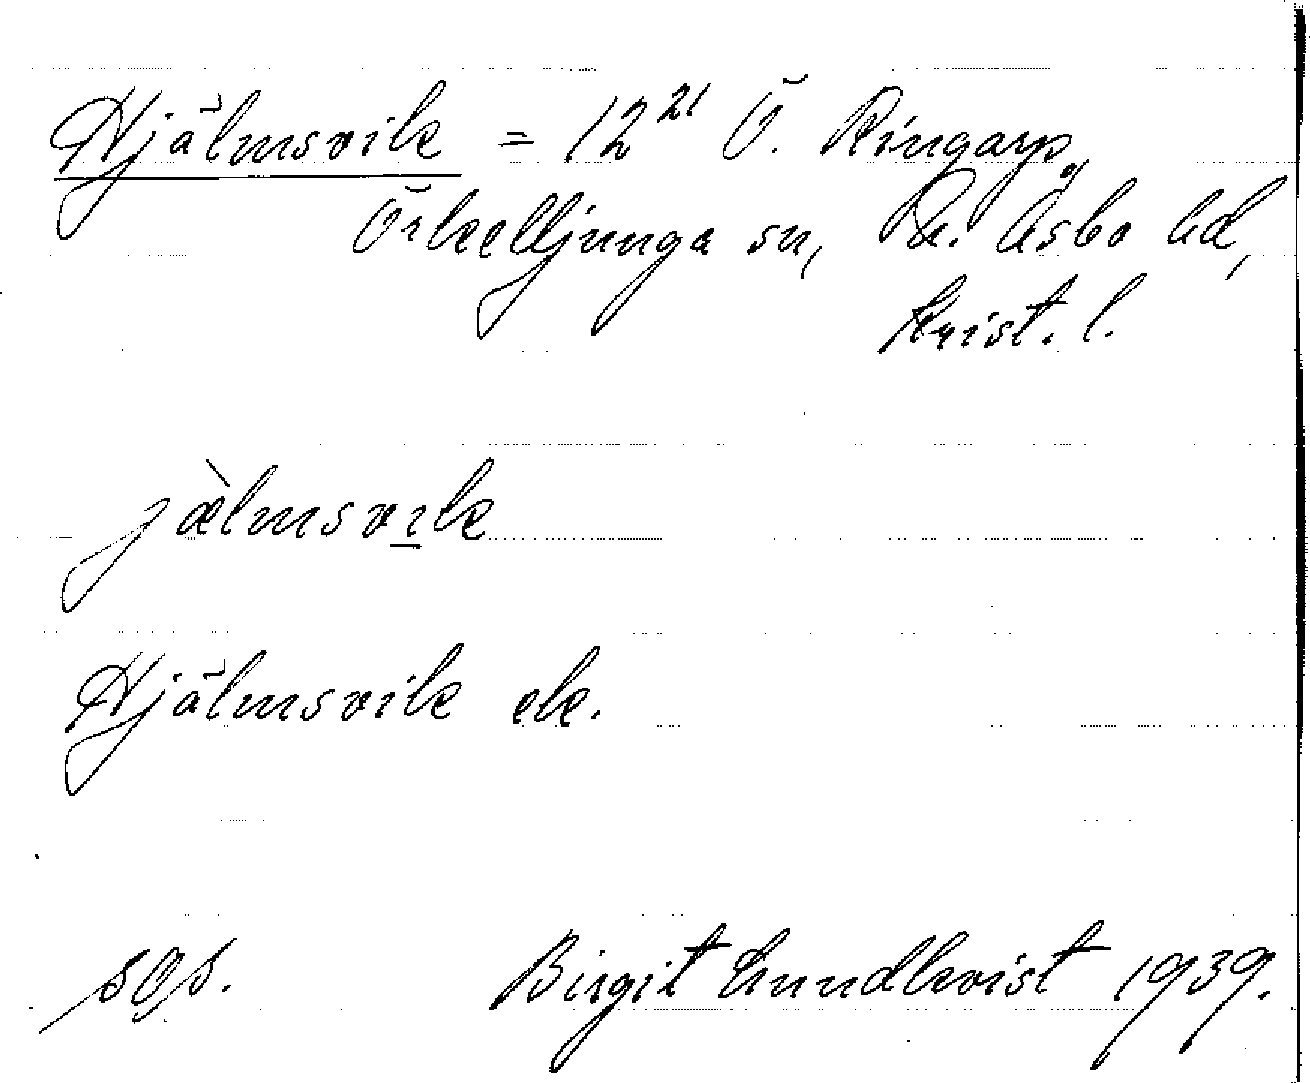 Hjälmsvik = 12²¹ Ö. Ringarp,
Örkelljunga sn, N. Åsbo hd,
Krist. l.
jæ̀lmsvı̱k
Hjälmsvik ek.
sgs. Birgit Lundkvist 1939.